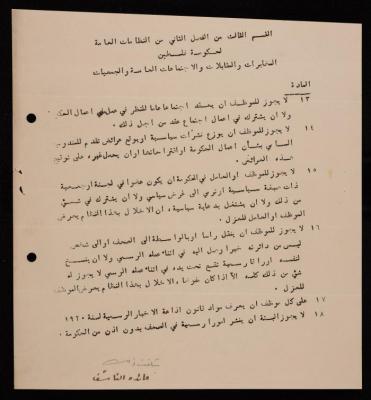 القسم الثالث من الفصل الثاني من النظامات العامة
لحكومة فلسطين
المخابرات والمقابلات والاجتماعات العامة والجمعيات
المادة
١٣ لا يجوز للموظف ان يعقد اجتماعا عاما للنظر في اعمال الحكومة
ولا ان يشترك في اعمال اجتماع عقد من اجل ذلك .
١٤ لا يجوز للموظف ان يوزع نشرات سياسية او يوقع عرائض تقدم للمندوب
السامي بشأن اعمال الحكومة او اقتراحاتها او ان يحمل غيره على توقيع
هذه العرائض .
١٥ لا يجوز للموظف او العامل في الحكومة ان يكون عضوا في لجنة او جمعية
ذات صبغة سياسية او ترمي الى غرض سياسي ولا ان يشترك في شيء
من ذلك ولا ان يشتغل بدعاية سياسية ، ان الاخلال بهذا النظام يعرض
الموظف او العامل للعزل .
١٦ لا يجوز للموظف ان ينقل رأسا او بالواسطة الى الصحف او الى شخص
ليس من دائرته خبرا وصل اليه في اثناء عمله الرسمي ولا ان ينسخ
لنفسه اوراقا رسمية تقع تحت يده في اثناء عمله الرسمي لا يجوز له
شيء من ذلك كله الا اذا كان مفوضا ، والاخلال بهذا النظام يعرض الموظف
للعزل .
١٧ على كل موظف ان يعرف مواد قانون اذاعة الاخبار الرسمية لسنة ١٩٢٠
١٨ لا يجوز البتة ان ينشر امورا رسمية في الصحف بدون اذن من الحكومة .